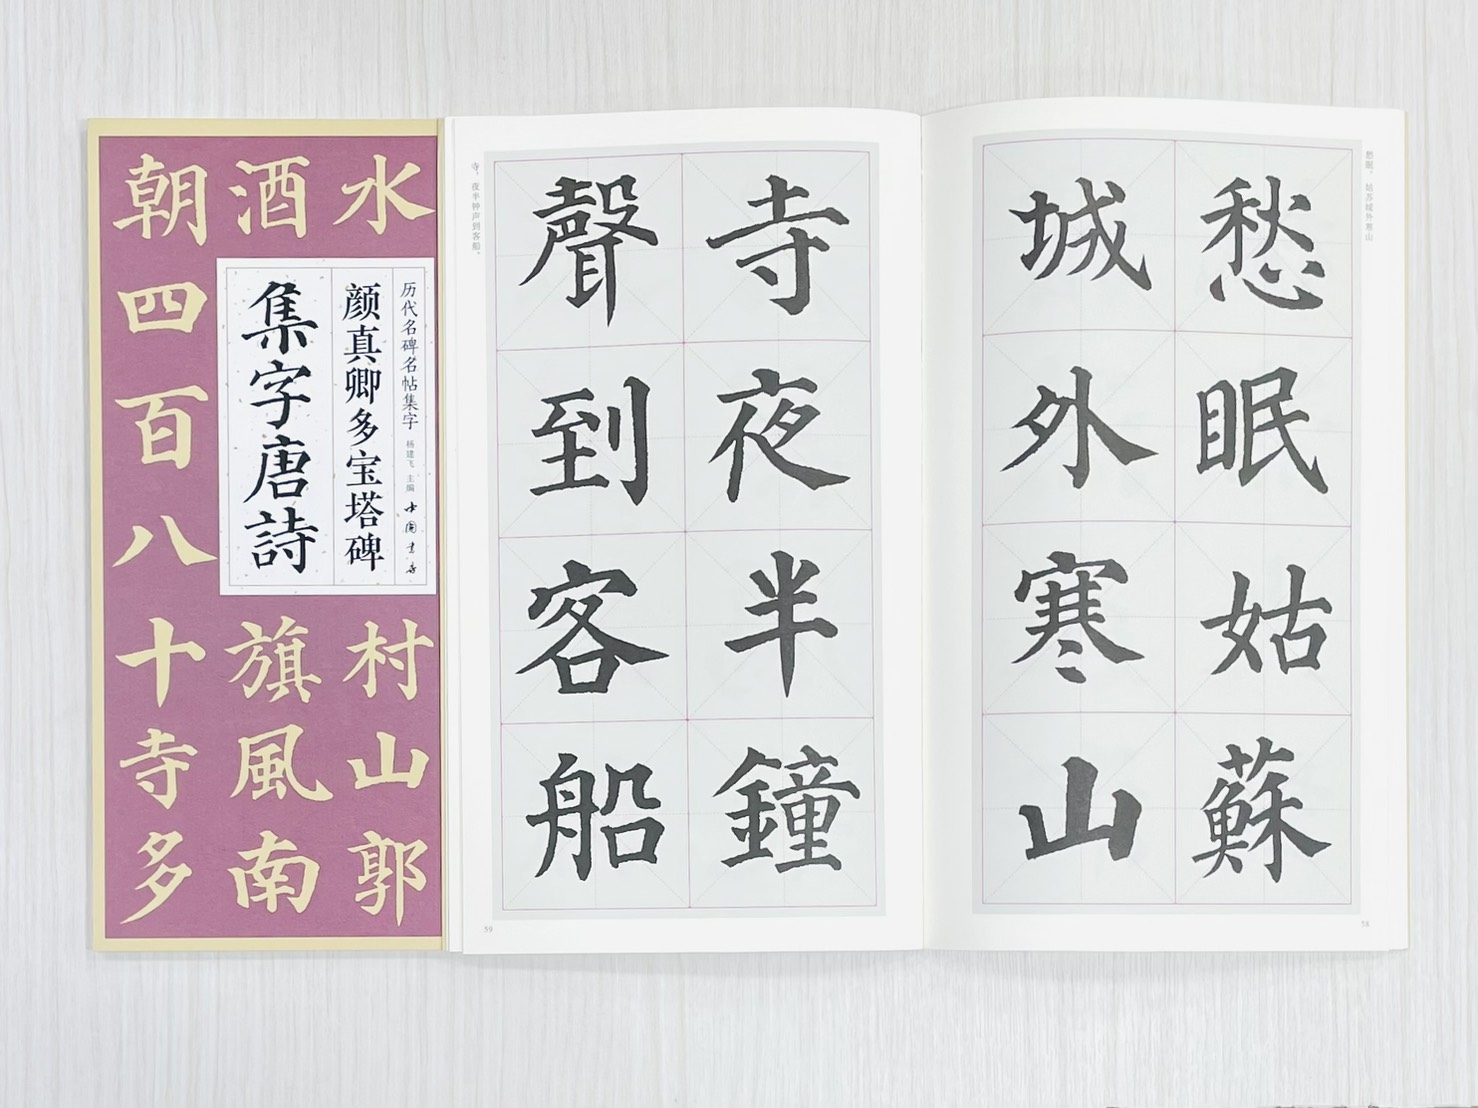 水
村山郭
酒
旗風南
朝四百八十寺多
历代名碑名帖集字
杨建飞 主编
中國書店
颜真卿多宝塔碑
集字唐詩
愁眠，姑苏城外寒山
愁眠姑蘇
城外寒山
58
寺夜半鐘
聲到客船
寺，夜半钟声到客船。
59